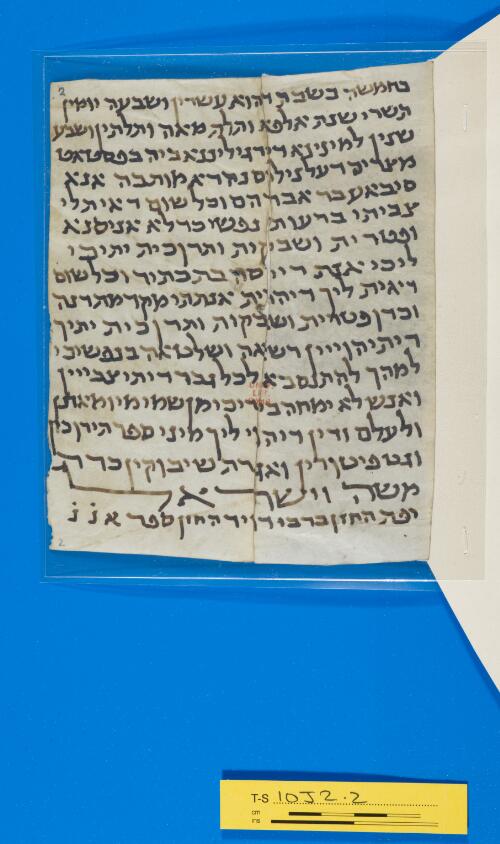 2
בחמשה בשבת דהוא עשרין ושבעה יומין
תשרי שנת אלפא ותלת מאה ותלתין ושבע
שנין למינינא דירגילנא ביה בפסטאט
מצרים דעל נילוס נהרא מותבה אנא
סיבאע בר אברהם וכל שום דאית לי
צביתי ברעות נפשי כד לא אניסנא
ופטרית ושבקית ותרוכית יתיכי
ליכי אנת בת וכל שום
דאית ליך דיהוית אנתתי מקדמת דנה
וכדו פטרית ושבקות ותרוכית יתיך
דיתיהוייין רשאה ושלטאה בנפשיכי
למהך להתנסבא לכל גבר דיתיצבייין
ואנש לא ימחה בידיכי מן שמי מן יומא דנן
ולעלם ודין דיהוי ליך מיני ספר תירוכין
וגט פיטורין ואגרת שיבוקין כדת
משה וישראל
יפת החזן בר דויד החזן ספר א נ נ
2
T-S 10J2.2
cm
ins